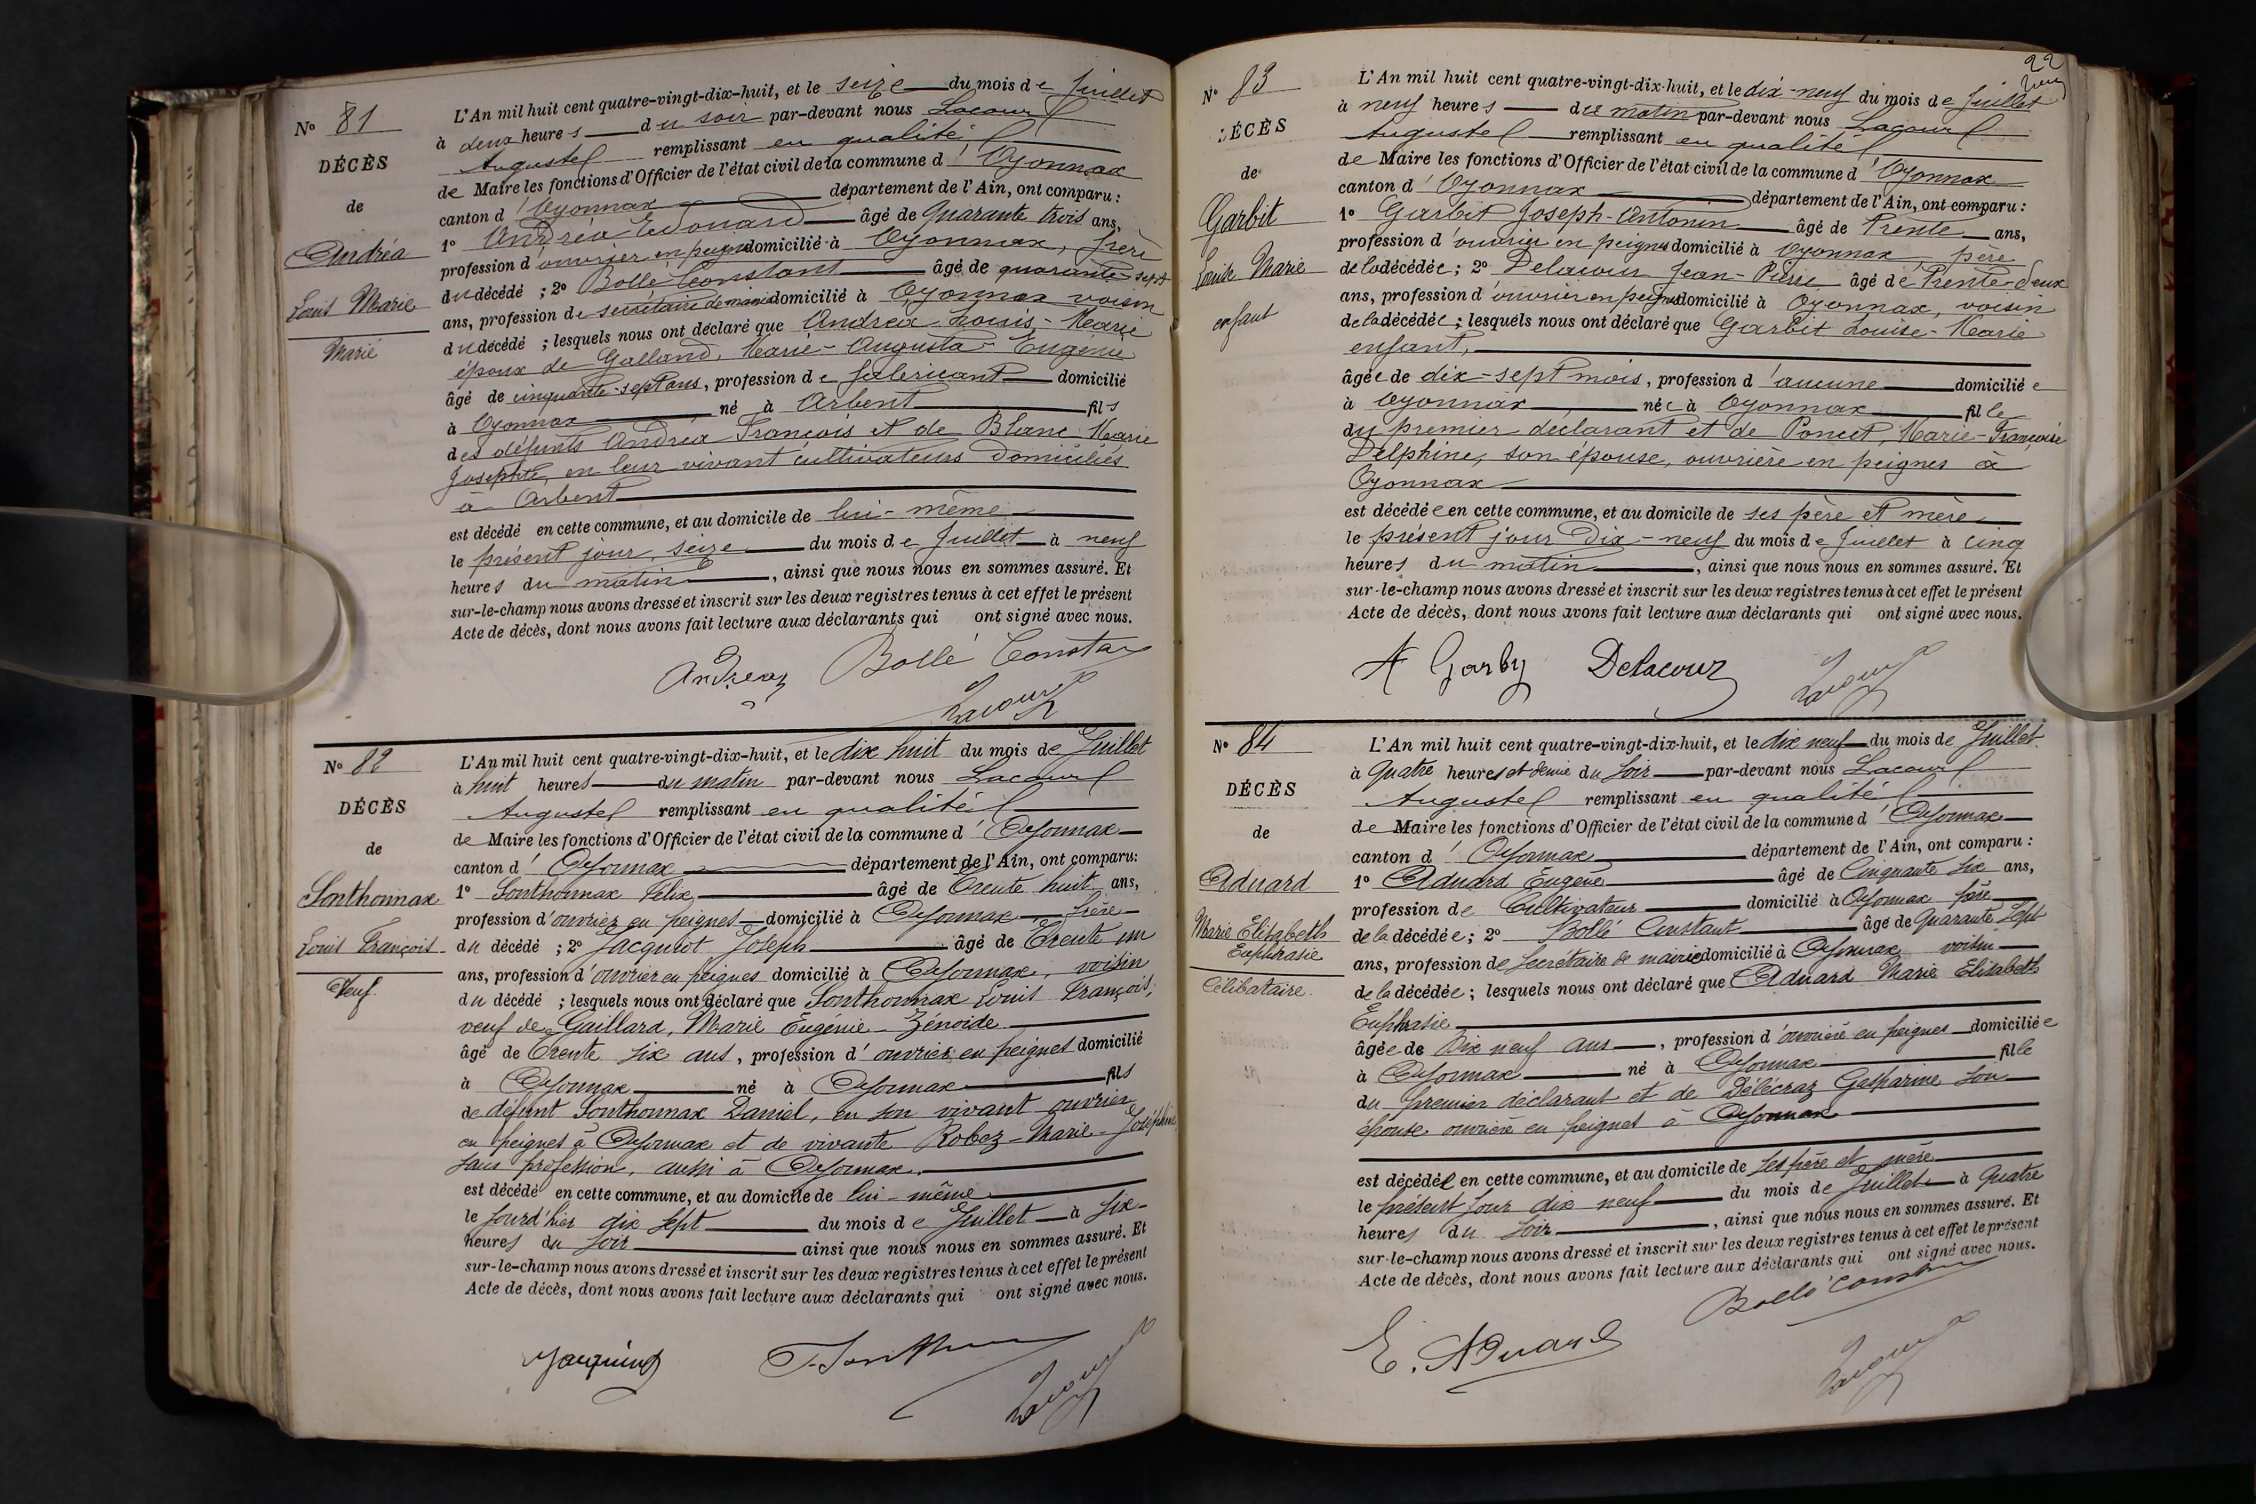 N° 81
DÉCÈS
de
Andréa
Louis Marie
Marié
L'An mil huit cent quatre-vingt-dix-huit, et le seize du mois de Juillet
à deux heures du soir par-devant nous Lacour
Auguste remplissant en qualité
de Maire les fonctions d'Officier de l'état civil de la commune d'Oyonnax
canton d'Oyonnax département de l'Ain, ont comparu :
1° Andréa Edouard âgé de Quarante trois ans,
profession d'ouvrier en peignes domicilié à Oyonnax, frère
du décédé ; 2° Bollé Constant âgé de quarante sept
ans, profession de secrétaire de mairie domicilié à Oyonnax voisin
du décédé ; lesquels nous ont déclaré que Andréa Louis-Marie
époux de Galland, Marie-Augusta-Eugénie
âgé de cinquante-sept ans, profession de fabricant domicilié
à Oyonnax né à Arbent fils
des défunts Andréa François et de Blanc Marie
Josephte, en leur vivant cultivateurs domiciliés
à Arbent
est décédé en cette commune, et au domicile de lui-même
le présent jour seize du mois de Juillet à neuf
heures du matin, ainsi que nous nous en sommes assuré. Et
sur-le-champ nous avons dressé et inscrit sur les deux registres tenus à cet effet le présent
Acte de décès, dont nous avons fait lecture aux déclarants qui ont signé avec nous.
Andréa Bollé Constant
Lacour
N° 82
DÉCÈS
de
Sonthonnax
Louis François
Veuf
L'An mil huit cent quatre-vingt-dix-huit, et le dix huit du mois de Juillet
à huit heures du matin par-devant nous Lacour
Auguste remplissant en qualité
de Maire les fonctions d'Officier de l'état civil de la commune d'Oyonnax
canton d'Oyonnax département de l'Ain, ont comparu :
1° Sonthonnax Félix, âgé de Trente huit ans,
profession d'ouvrier en peignes domicilié à Oyonnax frère
du décédé ; 2° Jacquiot Joseph âgé de Trente un
ans, profession d'ouvrier en peignes domicilié à Oyonnax, voisin
du décédé ; lesquels nous ont déclaré que Sonthonnax Louis François,
veuf de Gaillard, Marie Eugénie-Zénoide
âgé de Trente six ans, profession d'ouvrier en peignes domicilié
à Oyonnax né à Oyonnax fils
de défunt Sonthonnax Daniel, en son vivant ouvrier
en peignes à Oyonnax et de vivante Robez-Marie-Joséphine
sans profession, aussi à Oyonnax.
est décédé en cette commune, et au domicile de lui-même
le jourd'hier dix sept du mois de Juillet à six
heures du soir ainsi que nous nous en sommes assuré. Et
sur-le-champ nous avons dressé et inscrit sur les deux registres tenus à cet effet le présent
Acte de décès, dont nous avons fait lecture aux déclarants qui ont signé avec nous.
Lacour
22
N° 83
DÉCÈS
de
Garbit
Louise Marie
enfant
L'An mil huit cent quatre-vingt-dix-huit, et le dix-neuf du mois de Juillet
à neuf heures du matin par-devant nous Lacour
Auguste remplissant en qualité
de Maire les fonctions d'Officier de l'état civil de la commune d'Oyonnax
canton d'Oyonnax département de l'Ain, ont comparu :
1° Garbit Joseph-Antonin âgé de Trente ans,
profession d'ouvrier en peignes domicilié à Oyonnax, père
de la décédée ; 2° Delacour Jean-Pierre âgé de Trente-deux
ans, profession d'ouvrier en peignes domicilié à Oyonnax, voisin
de la décédée ; lesquels nous ont déclaré que Garbit Louise-Marie
enfant,
âgée de dix-sept mois, profession d'aucune domiciliée
à Oyonnax née à Oyonnax fille
du premier déclarant et de Poncet, Marie-Françoise
Delphine, son épouse, ouvrière en peignes à
Oyonnax
est décédée en cette commune, et au domicile de ses père et mère
le présent jour Dix-neuf du mois de Juillet à cinq
heures du matin, ainsi que nous nous en sommes assuré. Et
sur-le-champ nous avons dressé et inscrit sur les deux registres tenus à cet effet le présent
Acte de décès, dont nous avons fait lecture aux déclarants qui ont signé avec nous.
A Garby Delacour
Lacour
N° 84
DÉCÈS
de
Aduard
Marie Elisabeth
Euphrasie
Célibataire
L'An mil huit cent quatre-vingt-dix-huit, et le dix neuf du mois de Juillet
à Quatre heures et demie du soir par-devant nous Lacour
Auguste remplissant en qualité
de Maire les fonctions d'Officier de l'état civil de la commune d'Oyonnax
canton d'Oyonnax département de l'Ain, ont comparu :
1° Aduard Eugène âgé de Cinquante six ans,
profession de Cultivateur domicilié à Oyonnax père
de la décédée ; 2° Bollé Constant âgé de Quarante Sept
ans, profession de Secrétaire de mairie domicilié à Oyonnax voisin
de la décédée ; lesquels nous ont déclaré que Aduard Marie Elisabeth
Euphrasie
âgée de Dix neuf ans, profession d'ouvrière en peignes domiciliée
à Oyonnax né à Oyonnax fille
du premier déclarant et de Délécraz Gasparine son
épouse ouvrière en peignes à Oyonnax
est décédée en cette commune, et au domicile de ses père et mère
le présent jour dix neuf du mois de Juillet à Quatre
heures du soir, ainsi que nous nous en sommes assuré. Et
sur-le-champ nous avons dressé et inscrit sur les deux registres tenus à cet effet le présent
Acte de décès, dont nous avons fait lecture aux déclarants qui ont signé avec nous.
E. Aduard Bollé Constant
Lacour